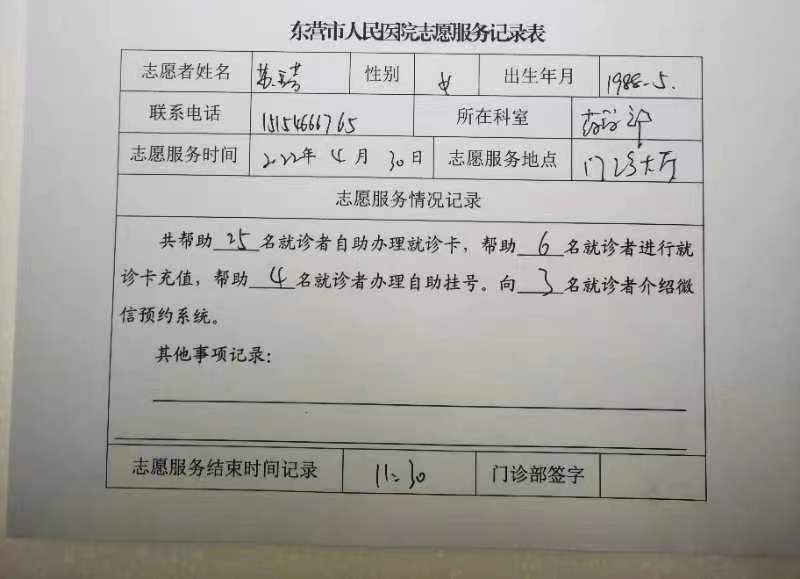 东营市人民医院志愿服务记录表
志愿者姓名 性别 女 出生年月 1988-5.
联系电话 15154666765 所在科室 药学部
志愿服务时间 2022年4月30日 志愿服务地点 门诊大厅
志愿服务情况记录
共帮助25名就诊者自助办理就诊卡，帮助6名就诊者进行就
诊卡充值，帮助4名就诊者办理自助挂号。向3名就诊者介绍微
信预约系统。
其他事项记录：
志愿服务结束时间记录 11:30 门诊部签字